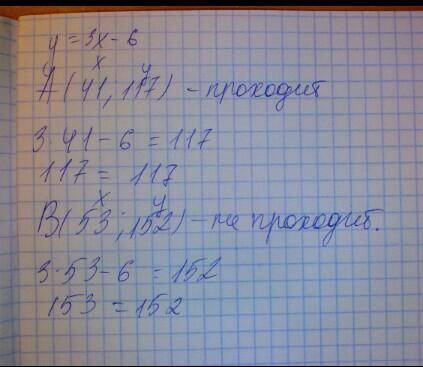 y = 3x - 6
x y
A (41; 117) - проходит
3·41 - 6 = 117
117 = 117
x y
B (53; 152) - не проходит.
3·53 - 6 = 152
153 = 152